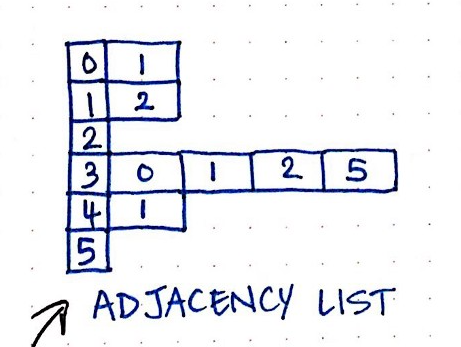 0 1
1 2
2
3 0 1 2 5
4 1
5
ADJACENCY LIST